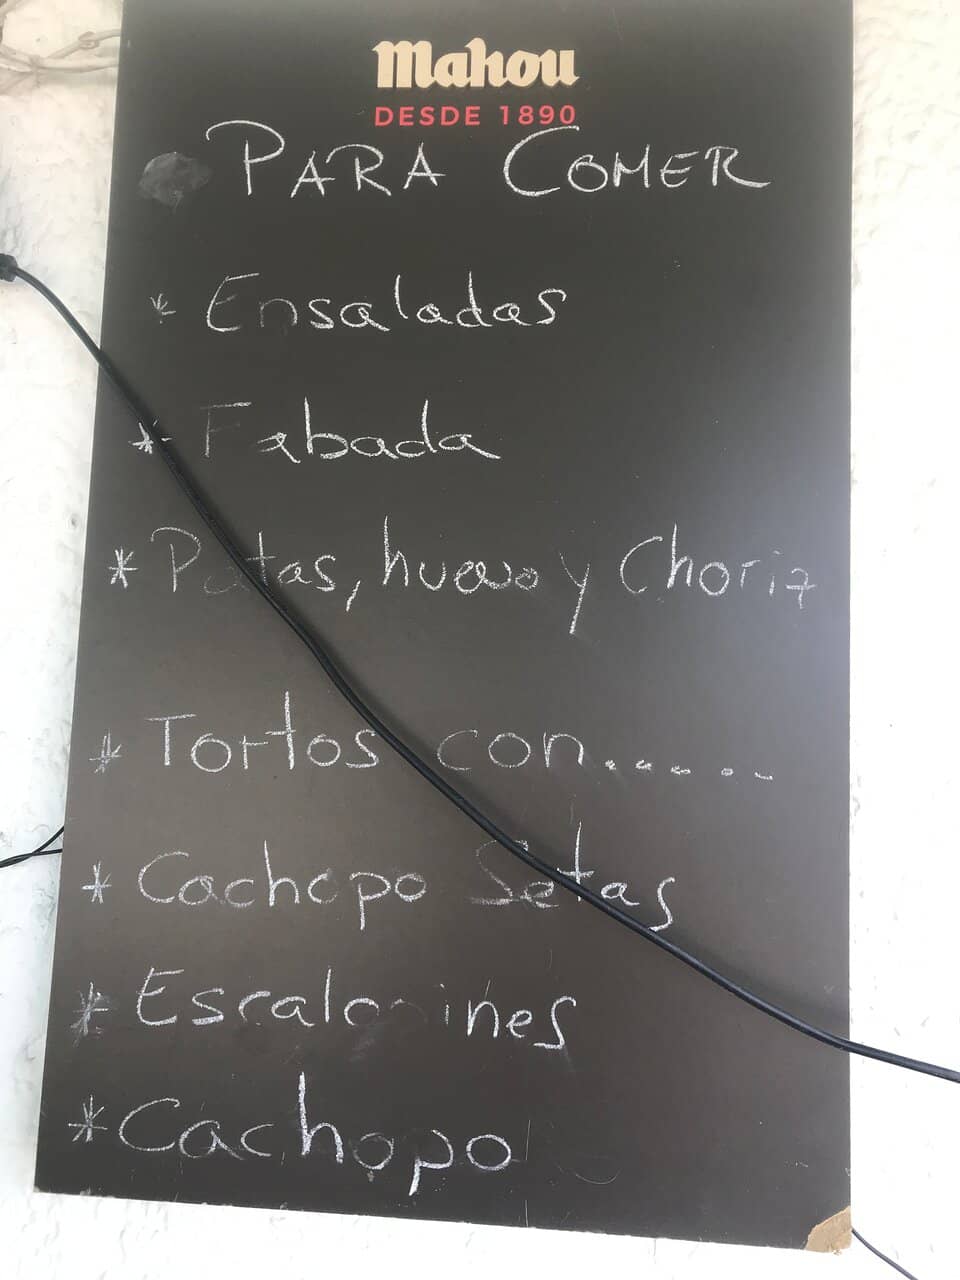 Mahou
DESDE 1890
PARA COMER
* Ensaladas
* Fabada
* Patatas, huevo y Choriz
* Tortos con......
* Cachopo Setas
* Escalopines
* Cachopo